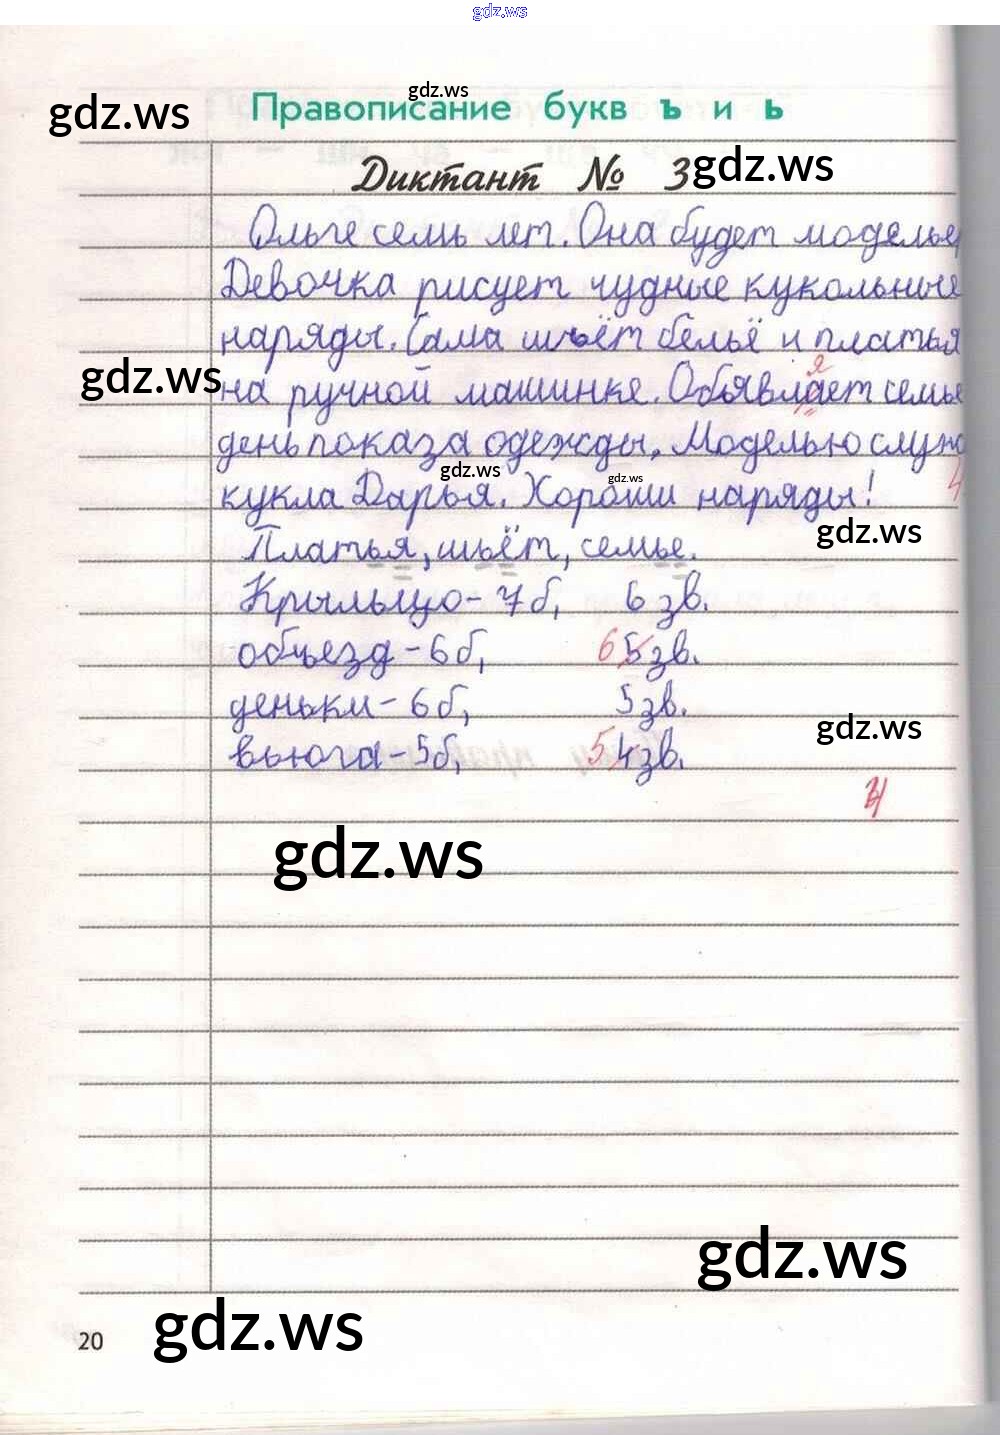 gdz.ws
gdz.ws
gdz.ws
Правописание букв ъ и ь
Диктант № 3
gdz.ws
Ольге семь лет. Она будет моделье
Девочка рисует чудные кукольные
наряды. Сама шьёт бельё и платья
gdz.ws
я
на ручной машинке. Объявлает семье
день показа одежды. Моделью служ
gdz.ws
gdz.ws
4
кукла Дарья. Хороши наряды!
gdz.ws
Платья, шьёт, семье.
Крыльцо - 7 б, 6 зв.
объезд - 6 б, 6 5 зв.
деньки - 6 б, 5 зв.
gdz.ws
вьюга - 5 б, 5 4 зв.
gdz.ws
gdz.ws
20
gdz.ws